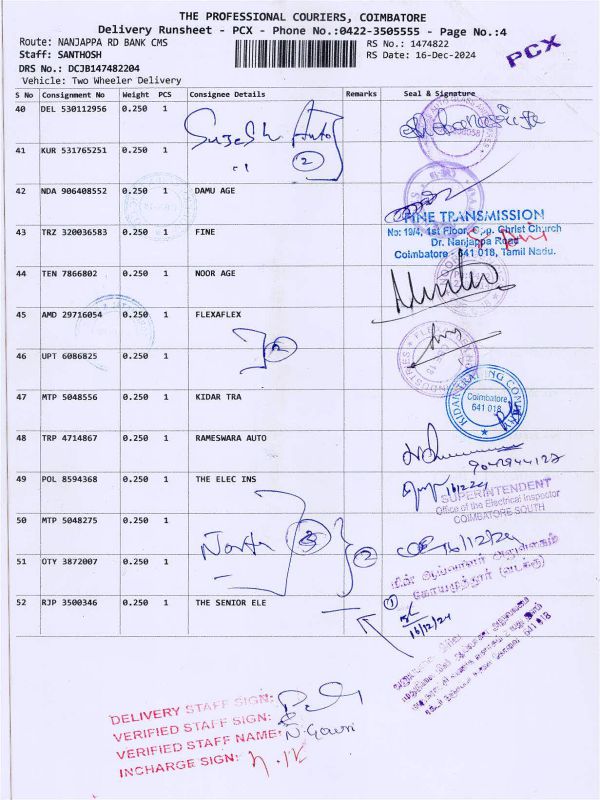 THE PROFESSIONAL COURIERS, COIMBATORE
Delivery Runsheet - PCX - Phone No.:0422-3505555 - Page No.:4
Route: NANJAPPA RD BANK CMS
RS No.: 1474822
PCX
Staff: SANTHOSH
RS Date: 16-Dec-2024
DRS No.: DCJB147482204
Vehicle: Two Wheeler Delivery
S No Consignment No Weight PCS Consignee Details Remarks Seal & Signature
40 DEL 530112956 0.250 1
Auto
41 KUR 531765251 0.250 1
2
42 NDA 906408552 0.250 1 DAMU AGE
FINE TRANSMISSION
43 TRZ 320036583 0.250 1 FINE
No: 19/4, 1st Floor, Opp. Christ Church
Dr. Nanjappa Road
Coimbatore - 641 018, Tamil Nadu.
44 TEN 7866802 0.250 1 NOOR AGE
45 AMD 29716054 0.250 1 FLEXAFLEX
46 UPT 6086825 0.250 1
47 MTP 5048556 0.250 1 KIDAR TRA
KIDAR TRADING COMPANY
Coimbatore
641 018
48 TRP 4714867 0.250 1 RAMESWARA AUTO
49 POL 8594368 0.250 1 THE ELEC INS
16/12/24
SUPERINTENDENT
Office of the Electrical Inspector
COIMBATORE SOUTH
50 MTP 5048275 0.250 1
North 3
16/12/24
51 OTY 3872007 0.250 1
2
மின் ஆய்வாளர் அலுவலகம்
கோயமுத்தூர் (வடக்கு)
52 RJP 3500346 0.250 1 THE SENIOR ELE
1
16/12/24
DELIVERY STAFF SIGN:
VERIFIED STAFF SIGN:
VERIFIED STAFF NAME: N. Gowri
INCHARGE SIGN: